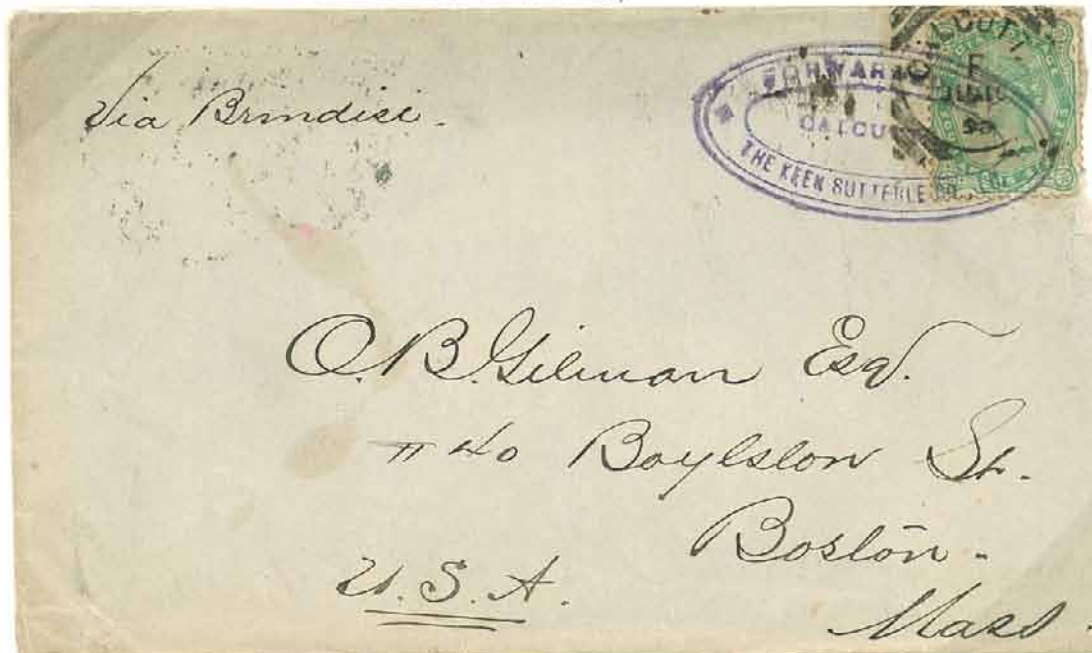 Via Brindisi.
CALCU
THE KEEN SUTTERLE CO.
O.B. Gilman Esq.
# 40 Boylston St.
Boston.
U.S.A.
Mass.